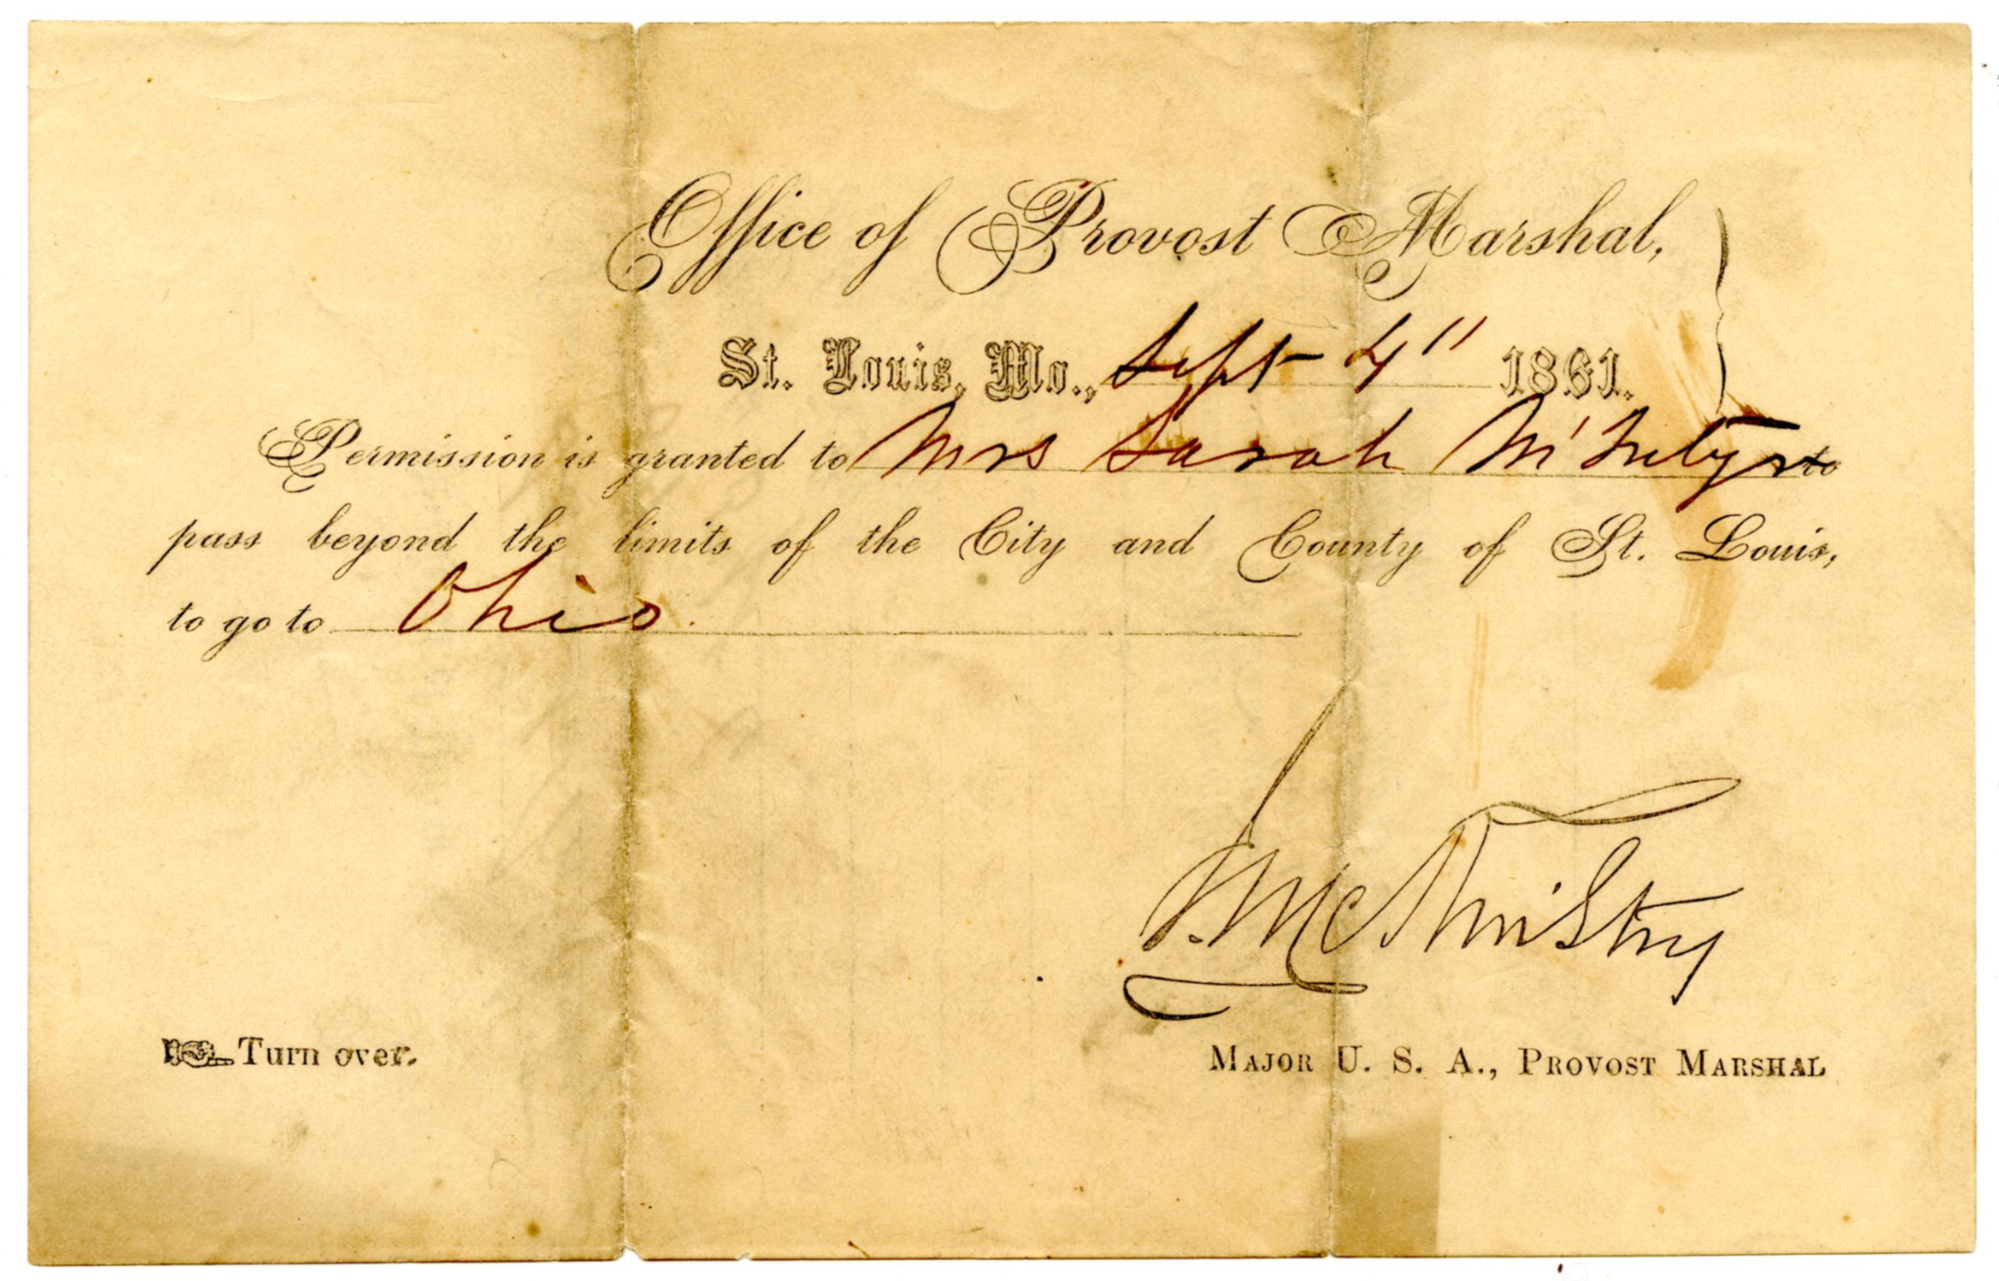 Office of Provost Marshal,
St. Louis, Mo., Sept 4" 1861.
Permission is granted to Mrs Sarah M'Intyre to
pass beyond the limits of the City and County of St. Louis,
to go to Ohio
J. McKinstry
Major U. S. A., Provost Marshal
Turn over.